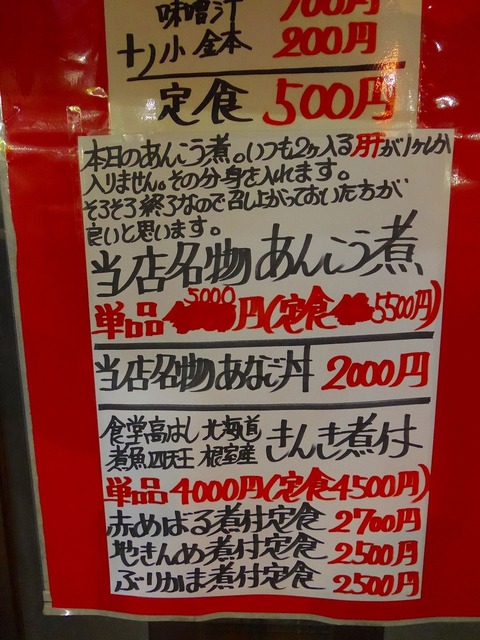 味噌汁 700円
+小鉢 200円
定食 500円
本日のあんこう煮。いつも2ヶ入る肝が1ヶしか
入りません。その分身を入れます。
そろそろ終了なので召し上がっておいた方が、
良いと思います。
当店名物あんこう煮
単品5000円(定食5500円)
当店名物あなご丼 2000円
食堂高はし 北海道
煮魚四天王 根室産 きんき煮付
単品4000円(定食4500円)
赤めばる煮付定食 2700円
地きんめ煮付定食 2500円
ぶりかま煮付定食 2500円